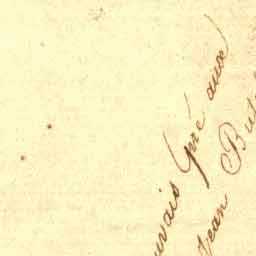 uvais Gré aux
Jean But